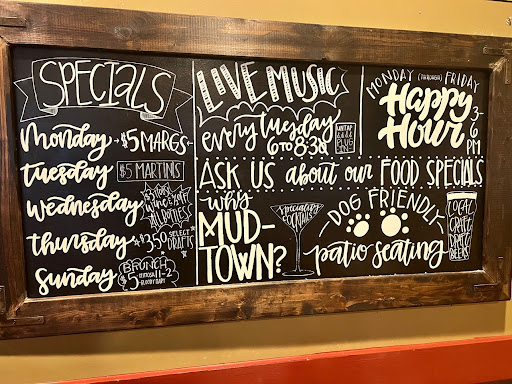 SPECIALS
monday $5 MARGS
tuesday $5 MARTINIS
wednesday WINE & 1/2 OFF ALL BOTTLES
thursday $3.50 SELECT DRAFTS
sunday BRUNCH 11-2
BLOODY BAR!
LIVE MUSIC
every tuesday
6 TO 8:30
UNTAP
&&&&
PLUG
ASK US about our FOOD SPECIALS
why
MUD-
TOWN?
specialty
COCKTAILS
MONDAY THROUGH FRIDAY
Happy
Hour
3-
6
PM
DOG FRIENDLY
patio seating
LOCAL
CRAFT
DRAFT
BEERS